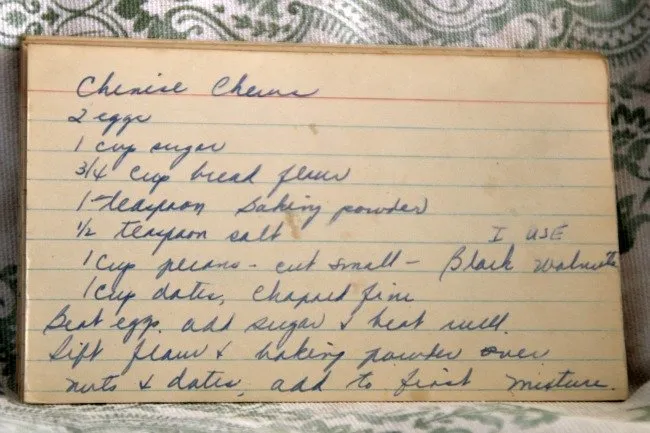 Chinise Chews
2 eggs
1 cup sugar
3/4 cup bread flour
1 teaspoon baking powder
1/2 teaspoon salt
I USE
1 cup pecans - cut small - Black Walnuts
1 cup dates, chopped fine
Beat eggs. add sugar & beat well.
Sift flour & baking powder over
nuts & dates, add to first mixture.